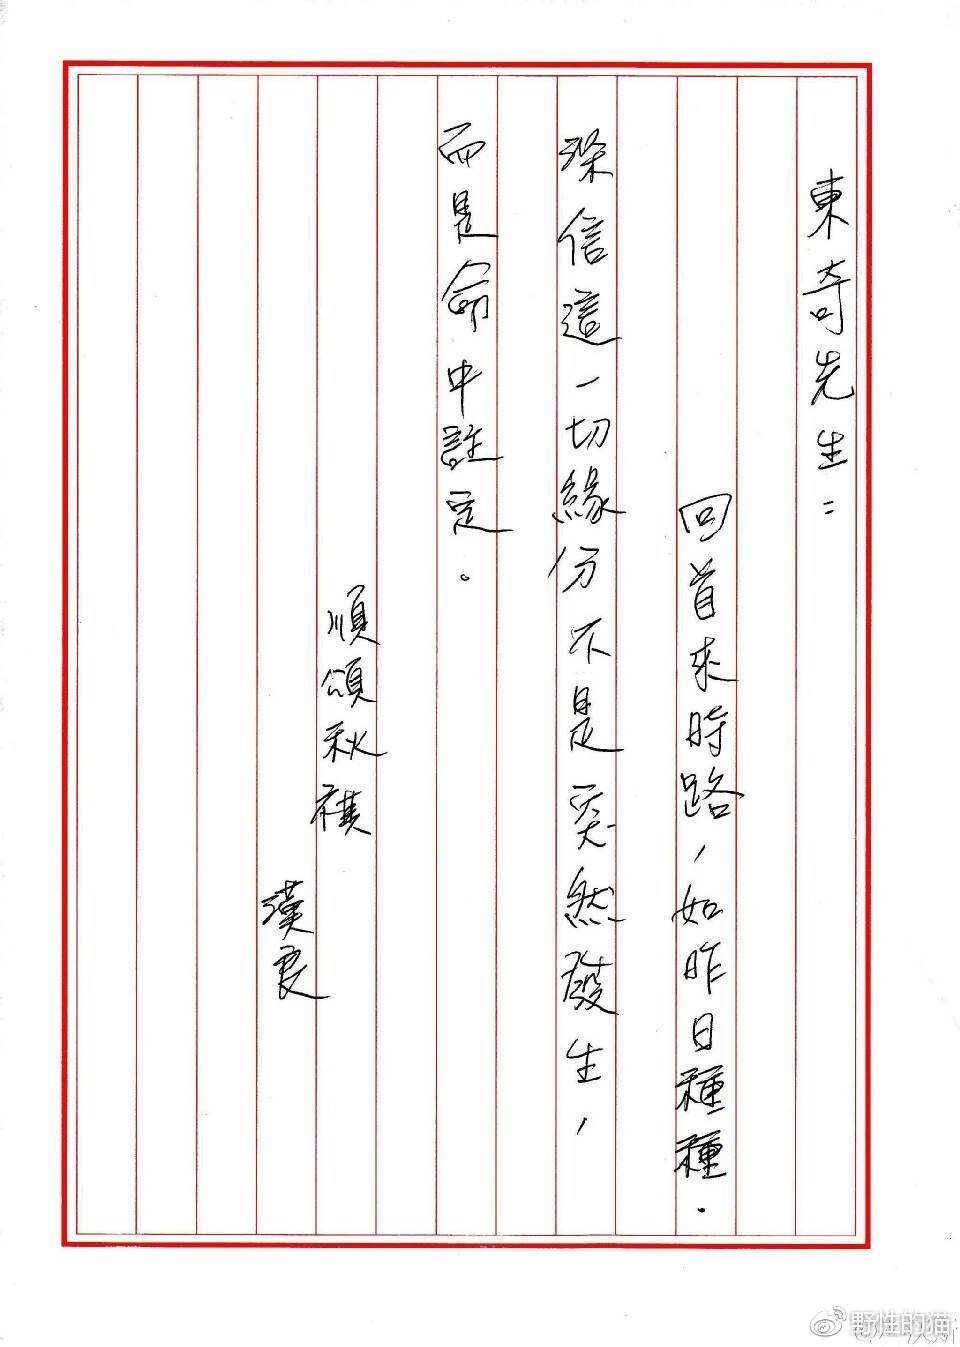 東奇先生：
回首來時路，如昨日種種．
深信這一切緣份不是突然發生，
而是命中註定。
順頌秋祺
漢良
@野性的猫